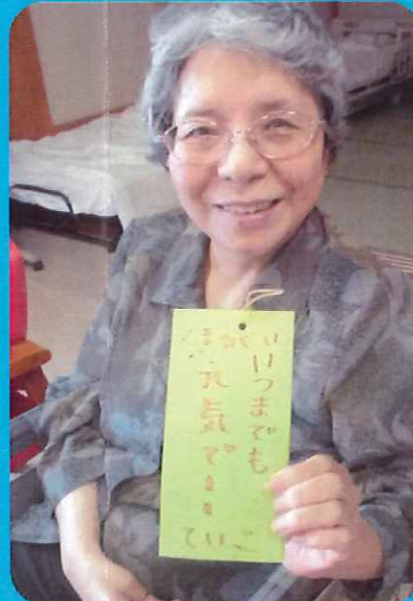 いつまでも
元気で!!
ていこ